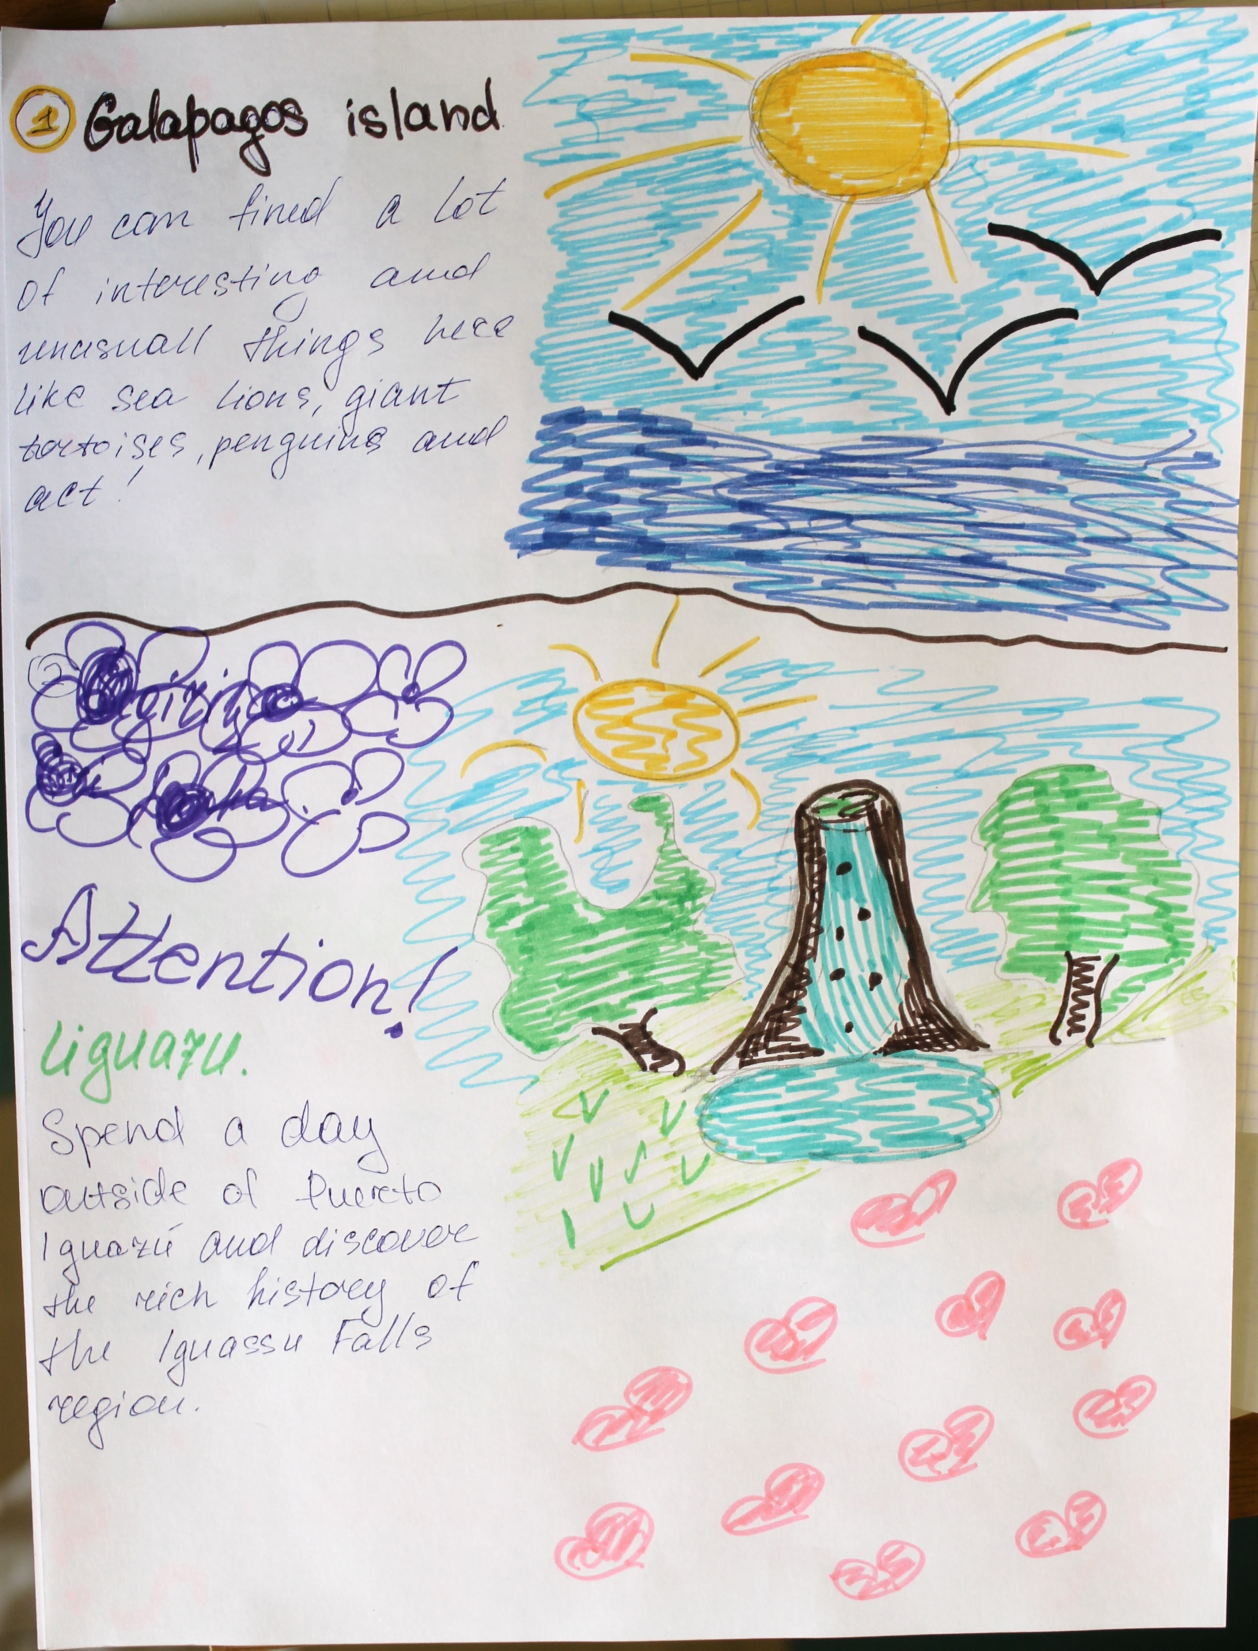 1 Galapagos island
You can fined a lot
of interesting and
unusuall things here
like sea lions, giant
tortoises, penguins and
act!
Attention!
Iiguazu.
Spend a day
outside of Puerto
Iguazú and discover
the rich history of
the Iguassu Falls
region.